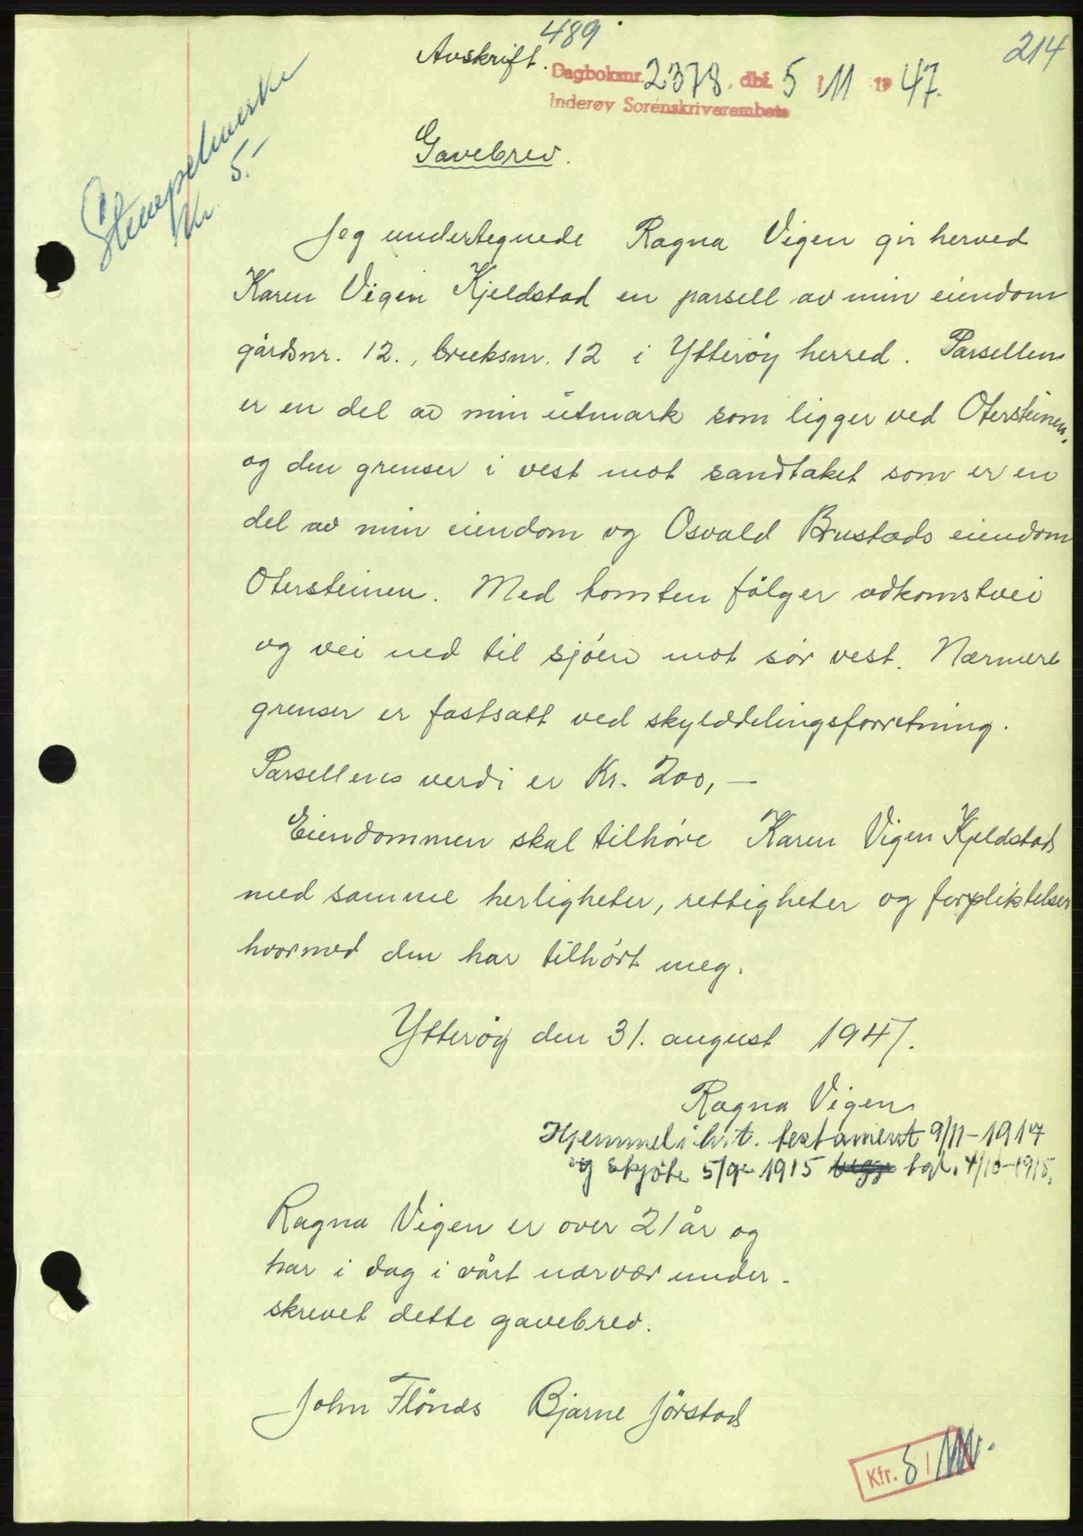 489
214
Avskrift.
Dagboksnr. 2378, dbf. 5/11 1947.
Inderøy Sorenskriverembete
Stempelmerke
kr. 5.-
Gavebrev.
Jeg undertegnede Ragna Vigen gir herved
Karen Vigen Kjeldstad en parsell av min eiendom
gårdsnr. 12., bruksnr. 12 i Ytterøy herred. Parsellen
er en del av min utmark som ligger ved Otersteinen,
og den grenser i vest mot sandtaket som er en
del av min eiendom og Osvald Brustads eiendom
Otersteinen. Med tomten følger adkomstvei
og vei ned til sjøen mot sør vest. Nærmere
grenser er fastsatt ved skylddelingsforretning.
Parsellens verdi er Kr. 200,-
Eiendommen skal tilhøre Karen Vigen Kjeldstad
med samme herligheter, rettigheter og forpliktelser
hvormed den har tilhørt meg.
Ytterøy den 31. august 1947.
Ragna Vigen
Hjemmel i h.t. testament 9/11-1917
og skjøte 5/9- 1915 tgl. 4/10-1915.
Ragna Vigen er over 21 år og
har i dag i vårt nærvær under-
skrevet dette gavebrev.
John Flönes Bjarne Jørstad
Kfr. 5/